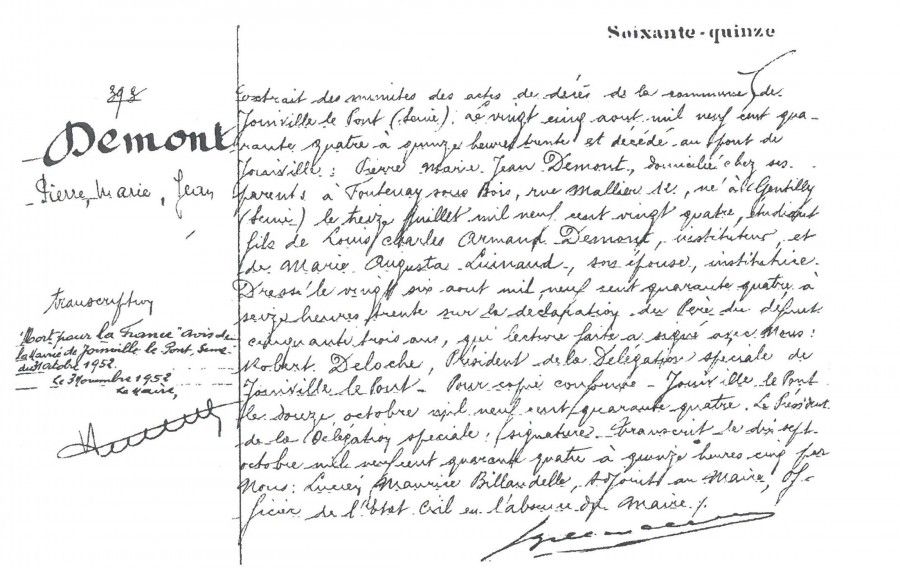 Soixante-quinze
393
Demont
Pierre, Marie, Jean
transcription
"Mort pour la France" avis de
la Mairie de Joinville le Pont, Seine
du octobre 1952
Le Novembre 1952
Le Maire,
Extrait des minutes des actes de décès de la commune de
Joinville le Pont (Seine). Le vingt cinq aout mil neuf cent qua-
rante quatre à quinze heures trente est décédé au pont de
Joinville : Pierre Marie Jean Demont, domicilié chez ses
parents à Fontenay sous Bois, rue Mallier 12, né à Gentilly
(Seine) le treize Juillet mil neuf cent vingt quatre, étudiant
fils de Louis Charles Armand Demont, instituteur, et
de Marie Augusta Luinaud, son épouse, institutrice.
Dressé le vingt six aout mil neuf cent quarante quatre à
seize heures trente sur la déclaration du Père du défunt
cinquante trois ans, qui lecture faite a signé avec Nous :
Robert Deloche, Président de la Délégation spéciale de
Joinville le Pont - Pour copie conforme - Joinville le Pont
le douze octobre mil neuf cent quarante quatre. Le Président
de la Délégation spéciale : (signature) Transcrit le dix sept
octobre mil neuf cent quarante quatre à quinze heures cinq par
Nous : Lucien Maurice Billaudelle, Adjoint au Maire, Of-
ficier de l'Etat Civil en l'absence du Maire /.